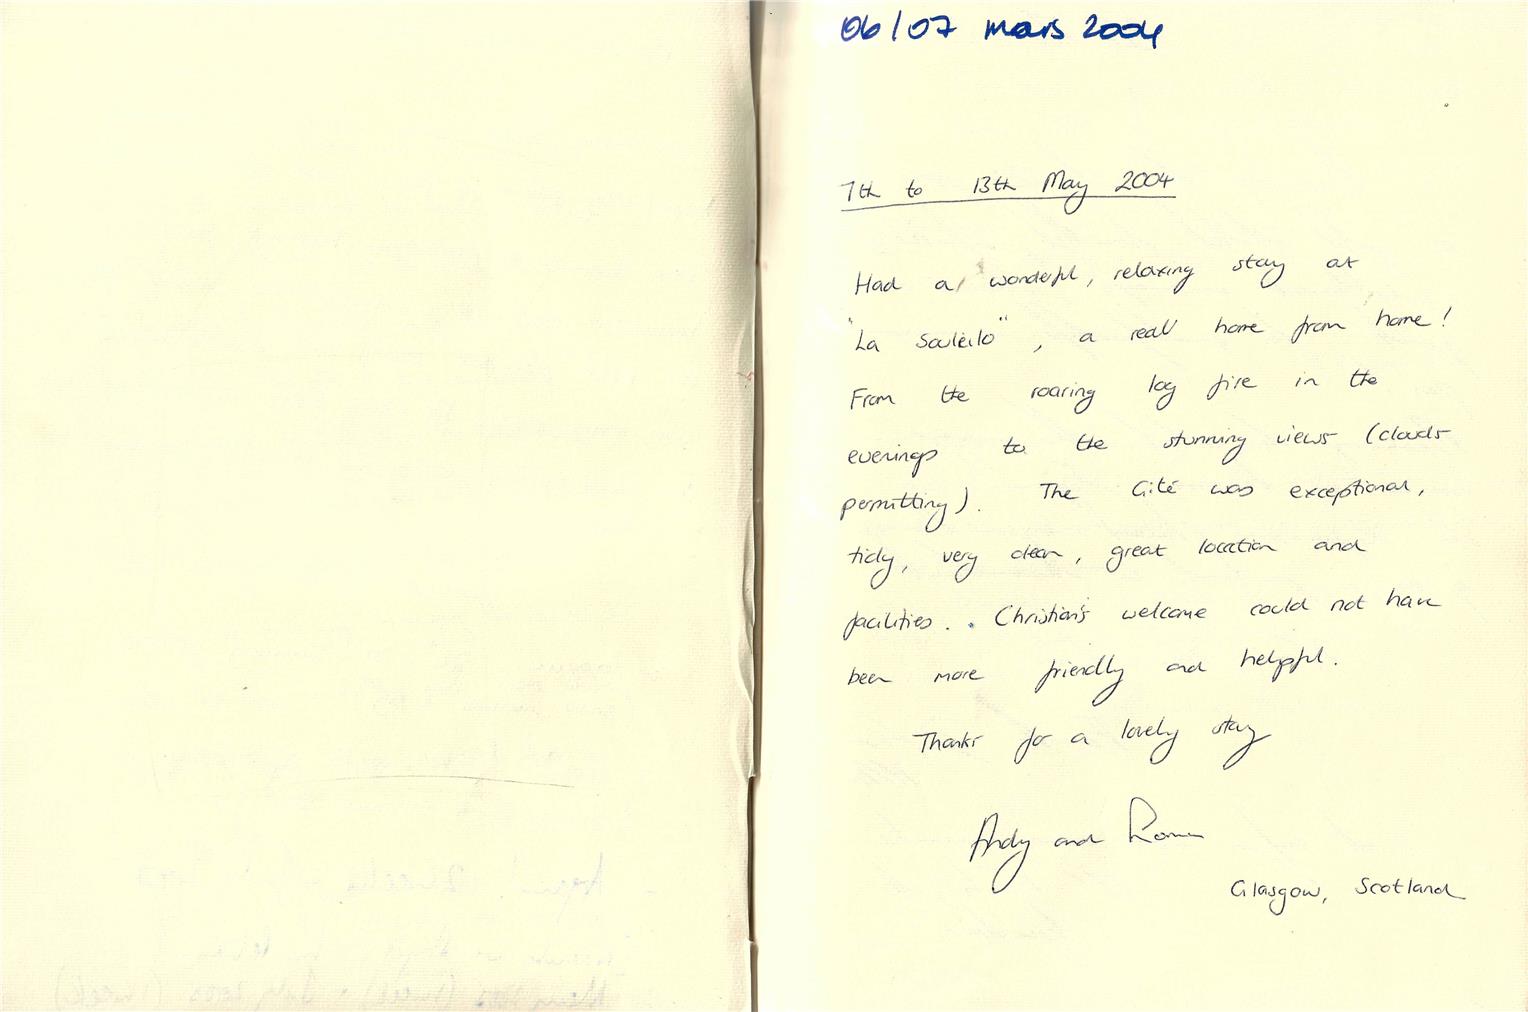 06/07 mars 2004
7th to 13th May 2004
Had a wonderful, relaxing stay at
"La Souleilo", a real home from home!
From the roaring log fire in the
evenings to the stunning views (clouds
permitting). The Gité was exceptional,
tidy, very clean, great location and
facilities.. Christian's welcome could not have
been more friendly and helpful.
Thanks for a lovely stay
Andy and
Glasgow, Scotland